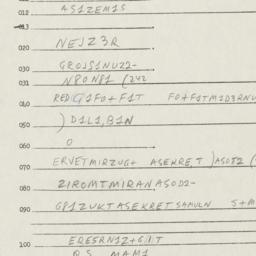 012 AS1ZEM1S
013
020 NEJZ3R
030 GROJS1NUZ2-
031 N8ON81 (242
040 RED G1FO+F1T FO+F1TM1D3RNU
050 ) D1L1,B1N
060 O
070 ERVETMIRZUG+ ASEKRE,T )ASOT2 (
080 21ROMTMIRANASOD1-
090 G81ZUKTASEKRETSAMULN S+M
100 EDESRN12+6
R.S. MAM1